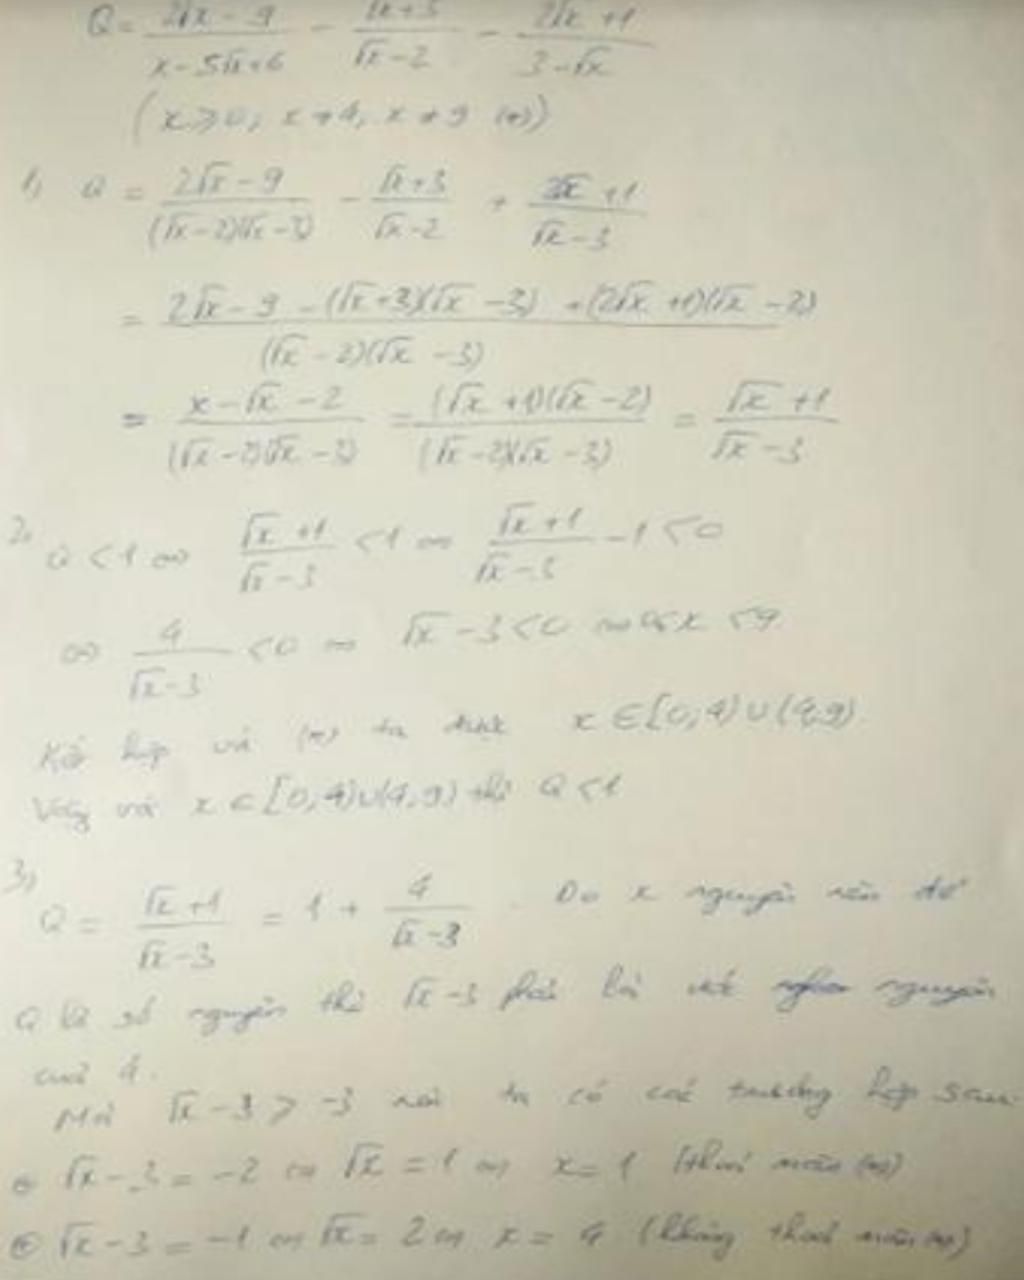 Q = (2√x - 9)/(x - 5√x + 6) - (√x + 3)/(√x - 2) - (2√x + 1)/(3 - √x)
(x ⩾ 0, x ≠ 4, x ≠ 9 (*))
1, Q = (2√x - 9)/((√x - 2)(√x - 3)) - (√x + 3)/(√x - 2) + (2√x + 1)/(√x - 3)
= (2√x - 9 - (√x + 3)(√x - 3) + (2√x + 1)(√x - 2))/((√x - 2)(√x - 3))
= (x - √x - 2)/((√x - 2)(√x - 3)) = ((√x + 1)(√x - 2))/((√x - 2)(√x - 3)) = (√x + 1)/(√x - 3)
2, Q < 1 ⇔ (√x + 1)/(√x - 3) < 1 ⇔ (√x + 1)/(√x - 3) - 1 < 0
⇔ 4/(√x - 3) < 0 ⇔ √x - 3 < 0 ⇔ 0 ≤ x < 9
Kết hợp với (*) ta được x ∈ [0, 4) ∪ (4, 9)
Vậy với x ∈ [0, 4) ∪ (4, 9) thì Q < 1
3, Q = (√x + 1)/(√x - 3) = 1 + 4/(√x - 3). Do x nguyên nên để
Q là số nguyên thì √x - 3 phải là ước nguyên
của 4.
Mà √x - 3 ⩾ -3 nên ta có các trường hợp sau
+ √x - 3 = -2 ⇔ √x = 1 ⇔ x = 1 (thoả mãn (*))
+ √x - 3 = -1 ⇔ √x = 2 ⇔ x = 4 (không thoả mãn (*))